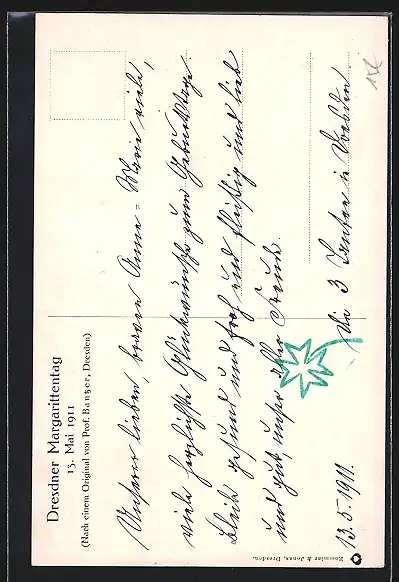 Dresdner Margarittentag
13. Mai 1911
(Nach einem Original von Prof. Bantzer, Dresden)
Unserer lieben, braven Anne-Marie viele,
viele herzlichste Glückwünsche zum Geburtstage.
Bleib gesund und froh und fleißig und lieb
und gut, unser aller Freude.
Die 3 Tanten in Dresden.
13.5.1911.
Römmler & Jonas, Dresden.